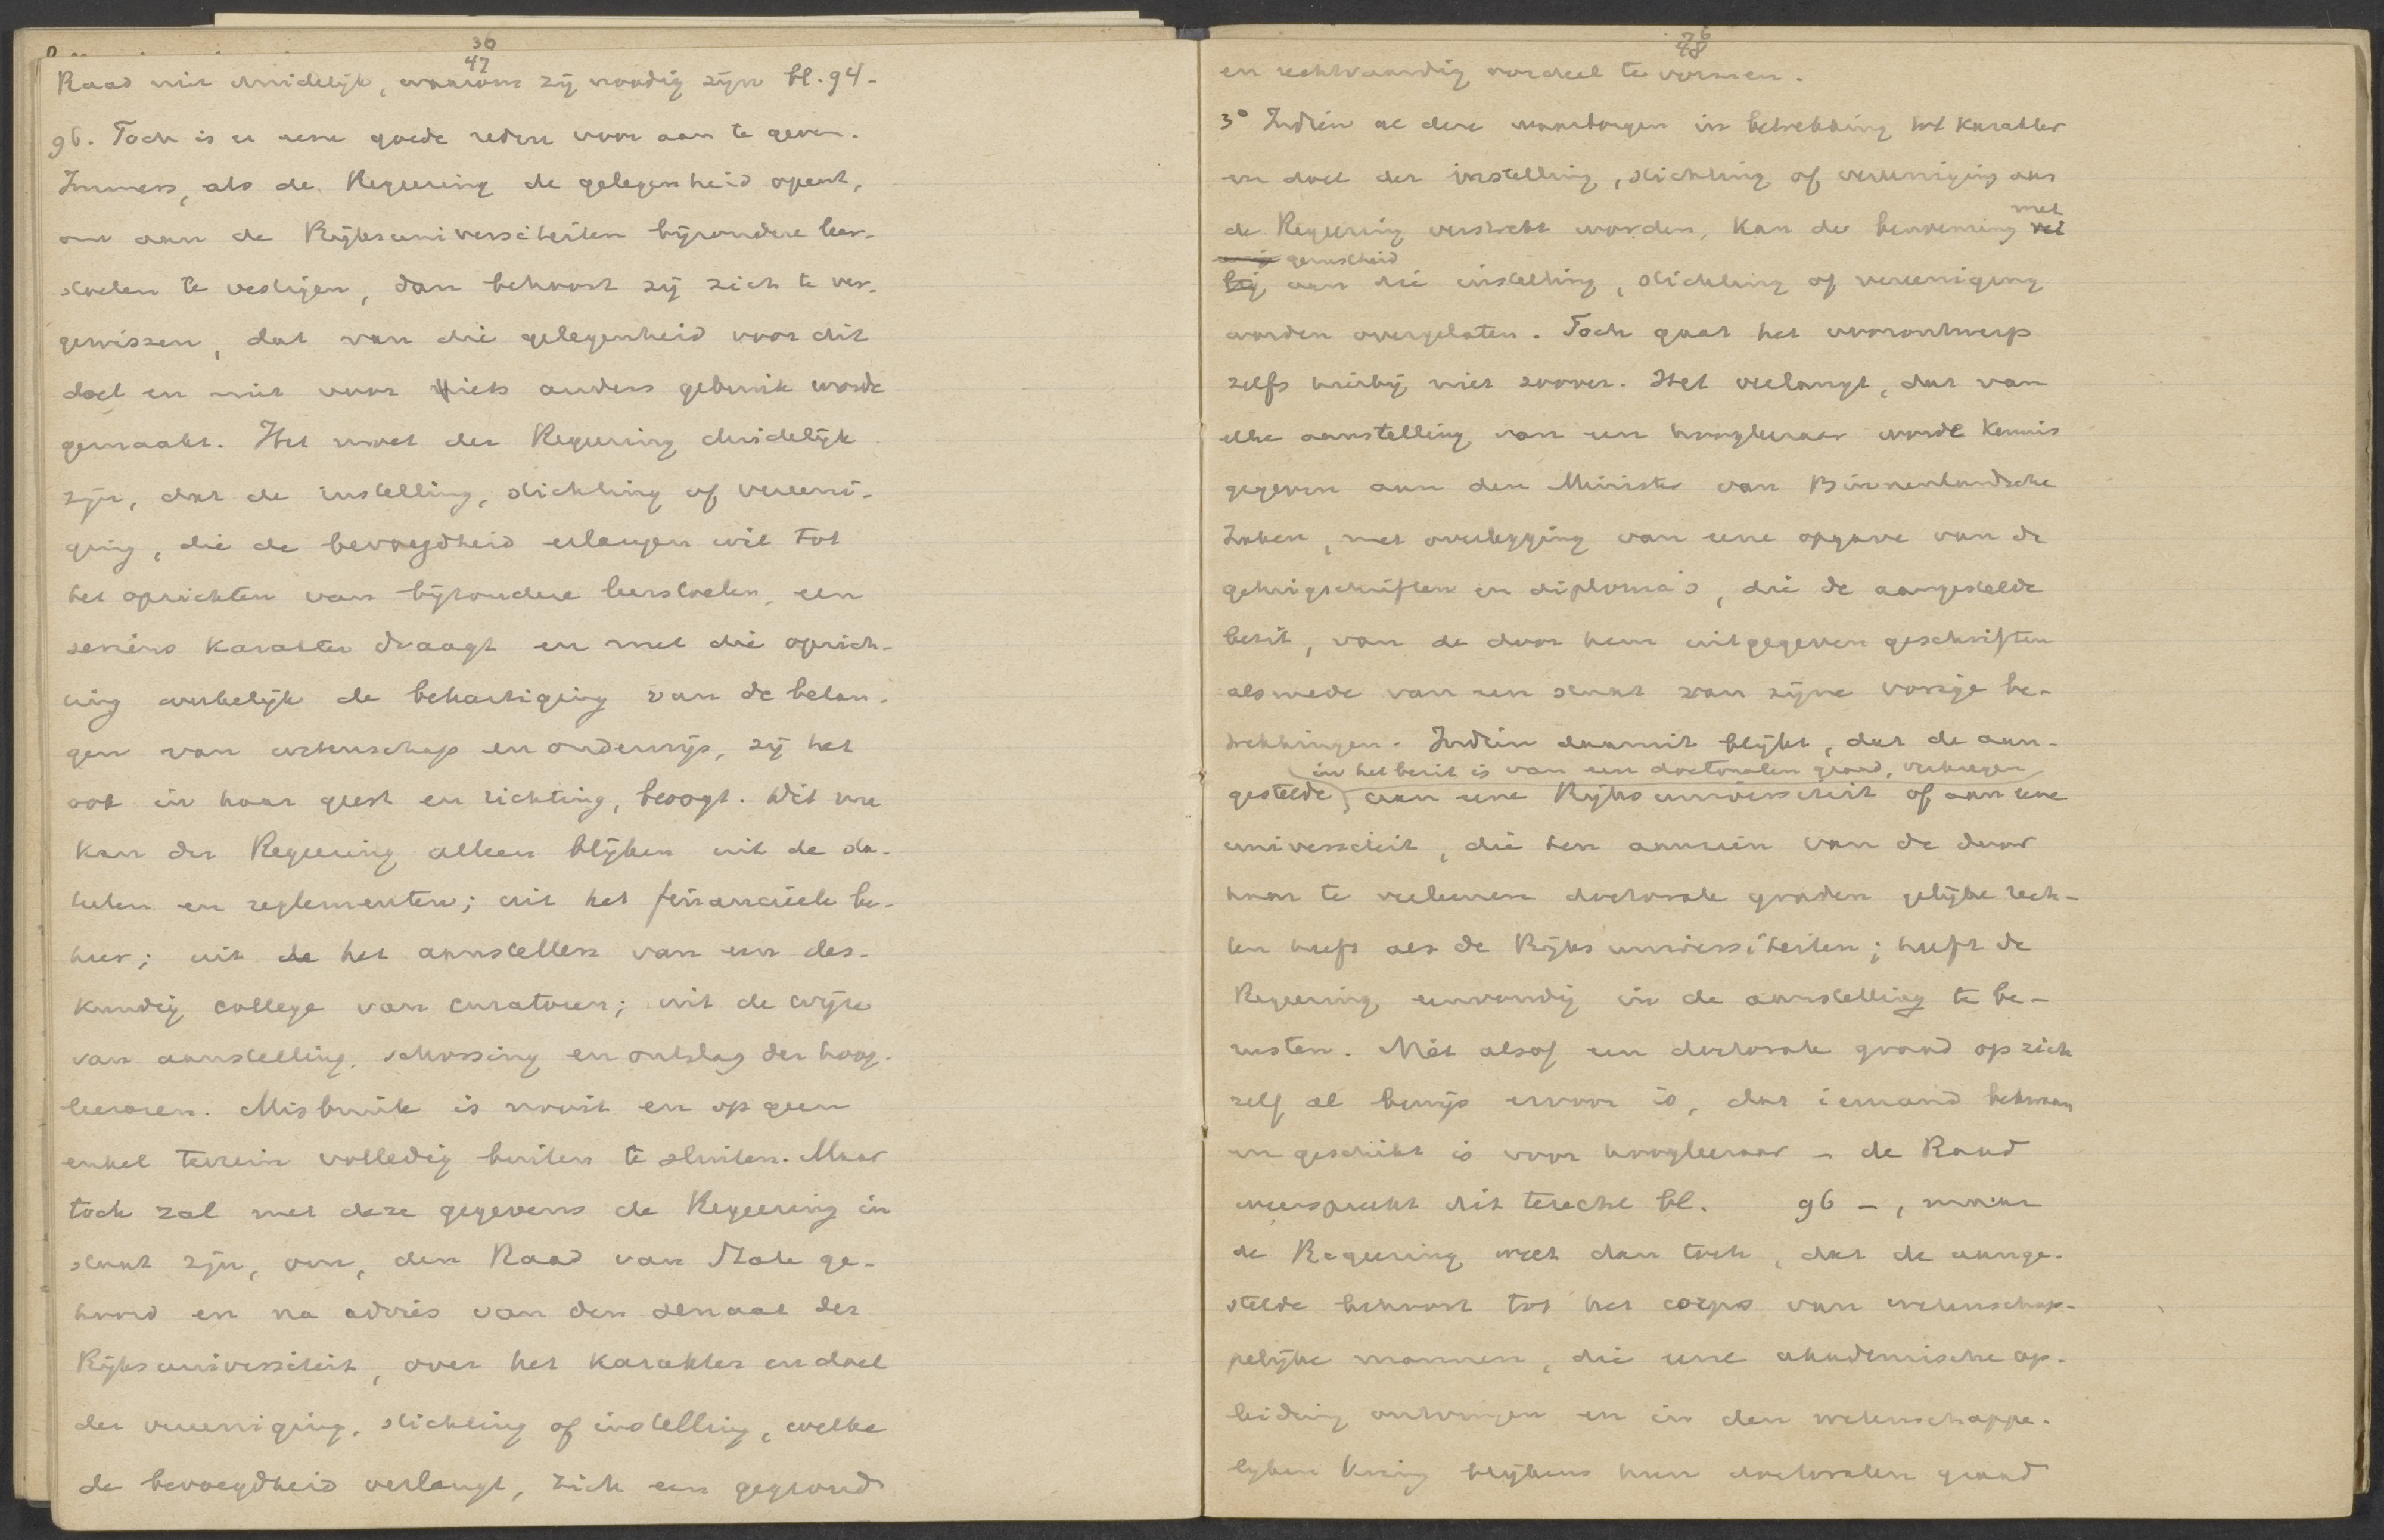 36
47
Raad niet duidelijk, waarom zij noodig zijn bl. 94-
96. Toch is er eene goede reden voor aan te geven.
Immers, als de Regeering de gelegenheid opent,
om aan de Rijksuniversiteiten bijzondere leer-
stoelen te vestigen, dan behoort zij zich te ver-
gewissen, dat van die gelegenheid voor dit
doel en niet voor iets anders gebruik worde
gemaakt. Het moet der Regeering duidelijk
zijn, dat de instelling, stichting of vereeni-
ging, die de bevoegdheid erlangen wil tot
het oprichten van bijzondere leerstoelen, een
serieus karakter draagt en met die oprich-
ting werkelijk de behartiging van de belan-
gen van wetenschap en onderwijs, zij het
ook in haar geest en richting, beoogt. Dit nu
kan der Regeering alleen blijken uit de sta-
tuten en reglementen; uit het financieele be-
heer; uit de het aanstellen van een des-
kundig college van curatoren; uit de wijze
van aanstelling, schorsing en ontslag der hoog-
leeraren. Misbruik is nooit en op geen
enkel terrein volledig buiten te sluiten. Maar
toch zal met deze gegevens de Regeering in
staat zijn, om, den Raad van State ge-
hoord en na advies van den senaat der
Rijksuniversiteit, over het karakter en doel
der vereeniging, stichting of instelling, welke
de bevoegdheid verlangt, zich een gegrond
48
en rechtvaardig oordeel te vormen.
3° Indien al deze waarborgen in betrekking tot karakter
en doel der instelling, stichting of vereeniging aan
de Regeering verstrekt worden, kan de benoeming met
gerustheid
aan die instelling, stichting of vereeniging
worden overgelaten. Toch gaat het voorontwerp
zelfs hierbij niet zoover. Het verlangt, dat van
elke aanstelling van een hoogleeraar worde kennis
gegeven aan den Minister van Binnenlandsche
Zaken, met overlegging van eene opgave van de
getuigschriften en diploma's, die de aangestelde
bezit, van de door hem uitgegeven geschriften
alsmede van een staat van zijne vorige be-
trekkingen. Indien daaruit blijkt, dat de aan-
in het bezit is van een doctoralen graad, verkregen
gestelde aan eene Rijksuniversiteit of aan eene
universiteit, die ten aanzien van de door
haar te verleenen doctorale graden gelijke rech-
ten heeft als de Rijksuniversiteiten; heeft de
Regeering eenvoudig in de aanstelling te be-
rusten. Niet alsof een doctorale graad op zich
zelf al bewijs ervoor is, dat iemand bekwaam
en geschikt is voor hoogleeraar - de Raad
weerspreekt dit terecht bl. 96 -, maar
de Regeering weet dan toch, dat de aange-
stelde behoort tot het corps van wetenschap-
pelijke mannen, die eene akademische op-
leiding ontvingen en in den wetenschappe-
lijken kring blijkens hun doctoralen graad